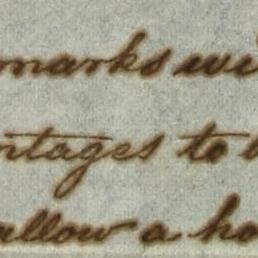 marks wi
ntages to
allow a ho